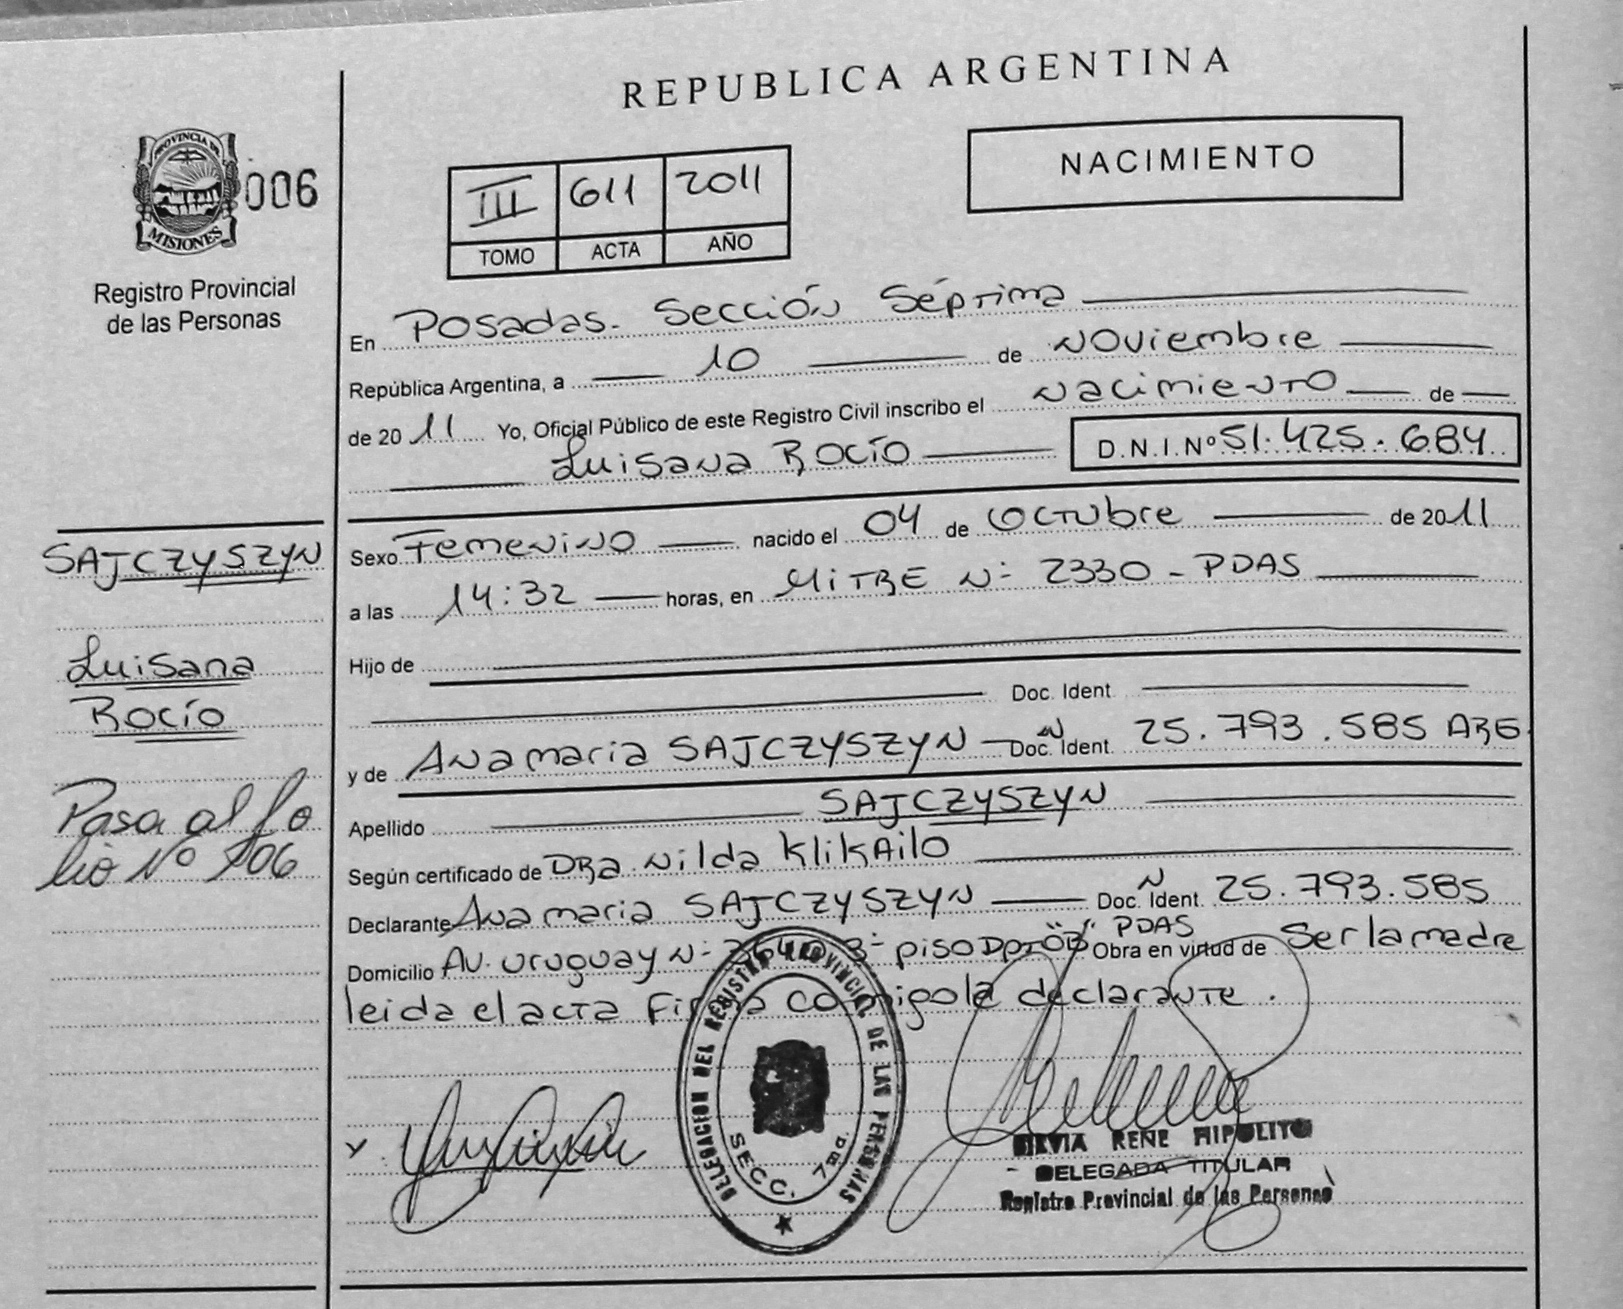 REPUBLICA ARGENTINA
PROVINCIA DE
MISIONES
006
Registro Provincial
de las Personas
III 611 2011
TOMO ACTA AÑO
NACIMIENTO
En Posadas. Sección Séptima
República Argentina, a 10 de Noviembre
de 2011 Yo, Oficial Público de este Registro Civil inscribo el Nacimiento de
Luisana Rocío D.N.I.Nº 51.425.684
SAJCZYSZYN
Luisana
Rocío
Pasa al fo
lio Nº 106
Sexo Femenino nacido el 04 de Octubre de 2011
a las 14:32 horas, en MITRE N- 2330 - PDAS
Hijo de
Doc. Ident
y de Ana maria SAJCZYSZYN Doc. N Ident. 25.793.585 ARG
Apellido SAJCZYSZYN
Según certificado de DRA. Nilda KLIKAILO
Declarante Ana maria SAJCZYSZYN Doc. N Ident. 25.793.585
Domicilio AV. Uruguay N- 3- piso DPTO "B" PDAS Obra en virtud de Ser la madre
leida el acta Firma conmigo la declarante.
DELEGACION DEL REGISTRO PROVINCIAL DE LAS PERSONAS
SECC. 7ma.
SILVIA RENE HIPOLITO
DELEGADA TITULAR
Registro Provincial de las Personas